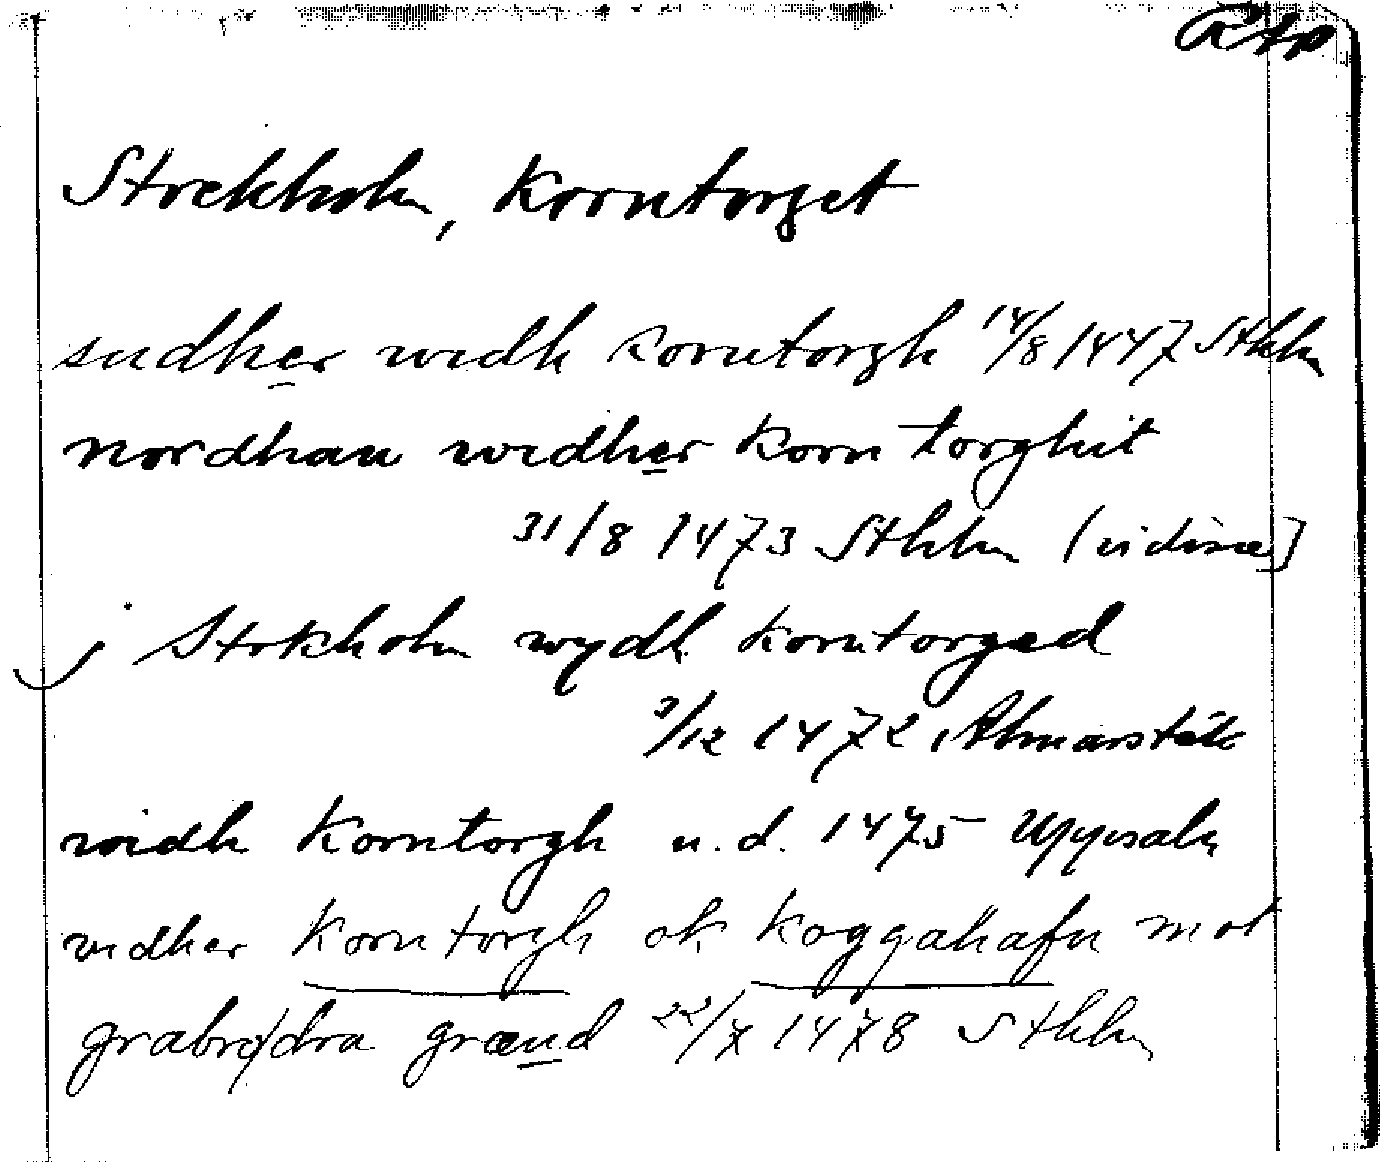 Rtp
Stockholm, Korntorget
sudher widh korntorgh 14/8 1447 Sthlm
nordhan widher korn torghit
31/8 1473 Sthlm (vidisse]
j Stokholm wydh korntorged
3/12 1472 Almarstäk
widh Korntorgh u.d. 1475 Uppsala
vidher Korntorgh ok koggahafn mot
grabrødra grænd 22/7 1478 Sthlm